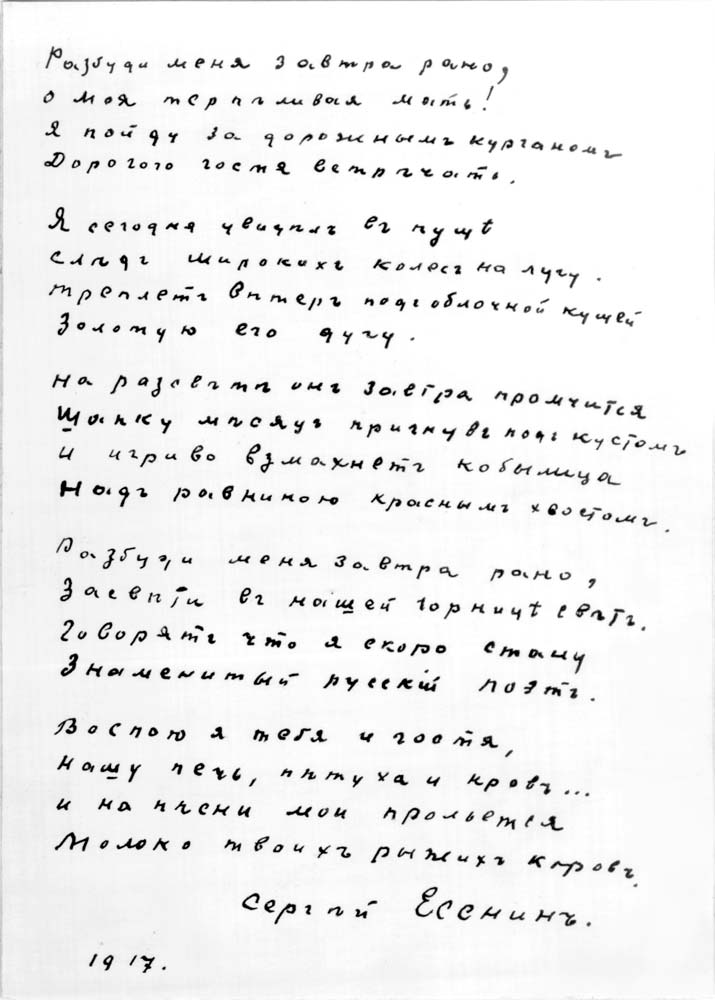 Разбуди меня завтра рано,
о моя терпѣливая мать!
Я пойду за дорожнымъ курганомъ
Дорогого гостя встрѣчать.
Я сегодня увидѣлъ въ пущѣ
слѣдъ широкихъ колесъ на лугу.
треплетъ вѣтеръ подъ облачной кущей
Золотую его дугу.
На разсвѣтѣ онъ завтра промчится
Шапку мѣсяцъ пригнувъ подъ кустомъ
и игриво взмахнетъ кобылица
Надъ равниною краснымъ хвостомъ.
Разбуди меня завтра рано,
Засвѣти въ нашей горницѣ свѣтъ.
Говорятъ что я скоро стану
Знаменитый русскій поэтъ.
Воспою я тебя и гостя,
нашу печь, пѣтуха и кровъ...
и на пѣсни мои прольется
Молоко твоихъ рыжихъ коровъ.
Сергѣй Есенинъ.
1917.